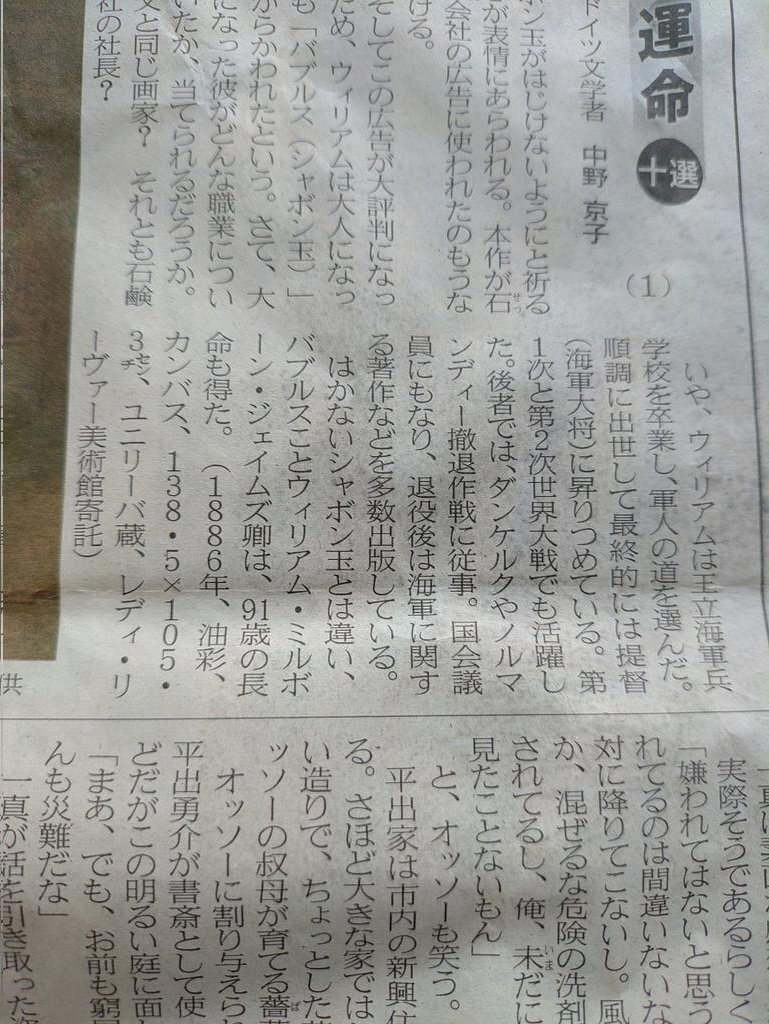 運命
十選
ドイツ文学者 中野 京子
（1）
ボン玉がはじけないようにと祈る
が表情にあらわれる。本作が石
会社の広告に使われたのもうな
ける。
そしてこの広告が大評判になっ
ため、ウィリアムは大人になっ
も「バブルス（シャボン玉）」
からかわれたという。さて、大
になった彼がどんな職業につい
いたか、当てられるだろうか。
父と同じ画家？ それとも石鹸
社の社長？
いや、ウィリアムは王立海軍兵
学校を卒業し、軍人の道を選んだ。
順調に出世して最終的には提督
（海軍大将）に昇りつめている。第
1次と第2次世界大戦でも活躍し
た。後者では、ダンケルクやノルマ
ンディー撤退作戦に従事。国会議
員にもなり、退役後は海軍に関す
る著作などを多数出版している。
はかないシャボン玉とは違い、
バブルスことウィリアム・ミルボ
ーン・ジェイムズ卿は、91歳の長
命も得た。（1886年、油彩、
カンバス、138・5×105・
3㌢、ユニリーバ蔵、レディ・リ
ーヴァー美術館寄託）
供
実際そうであるらしく
「嫌われてはないと思う
れてるのは間違いないな
対に降りてこないし。風
か、混ぜるな危険の洗剤
されてるし、俺、未だに
見たことないもん」
と、オッソーも笑う。
平出家は市内の新興住
る。さほど大きな家では
い造りで、ちょっとした
ッソーの叔母が育てる薔薇
オッソーに割り与えられ
平出勇介が書斎として使
どだがこの明るい庭に面
「まあ、でも、お前も窮屈
んも災難だな」
一真が話を引き取った